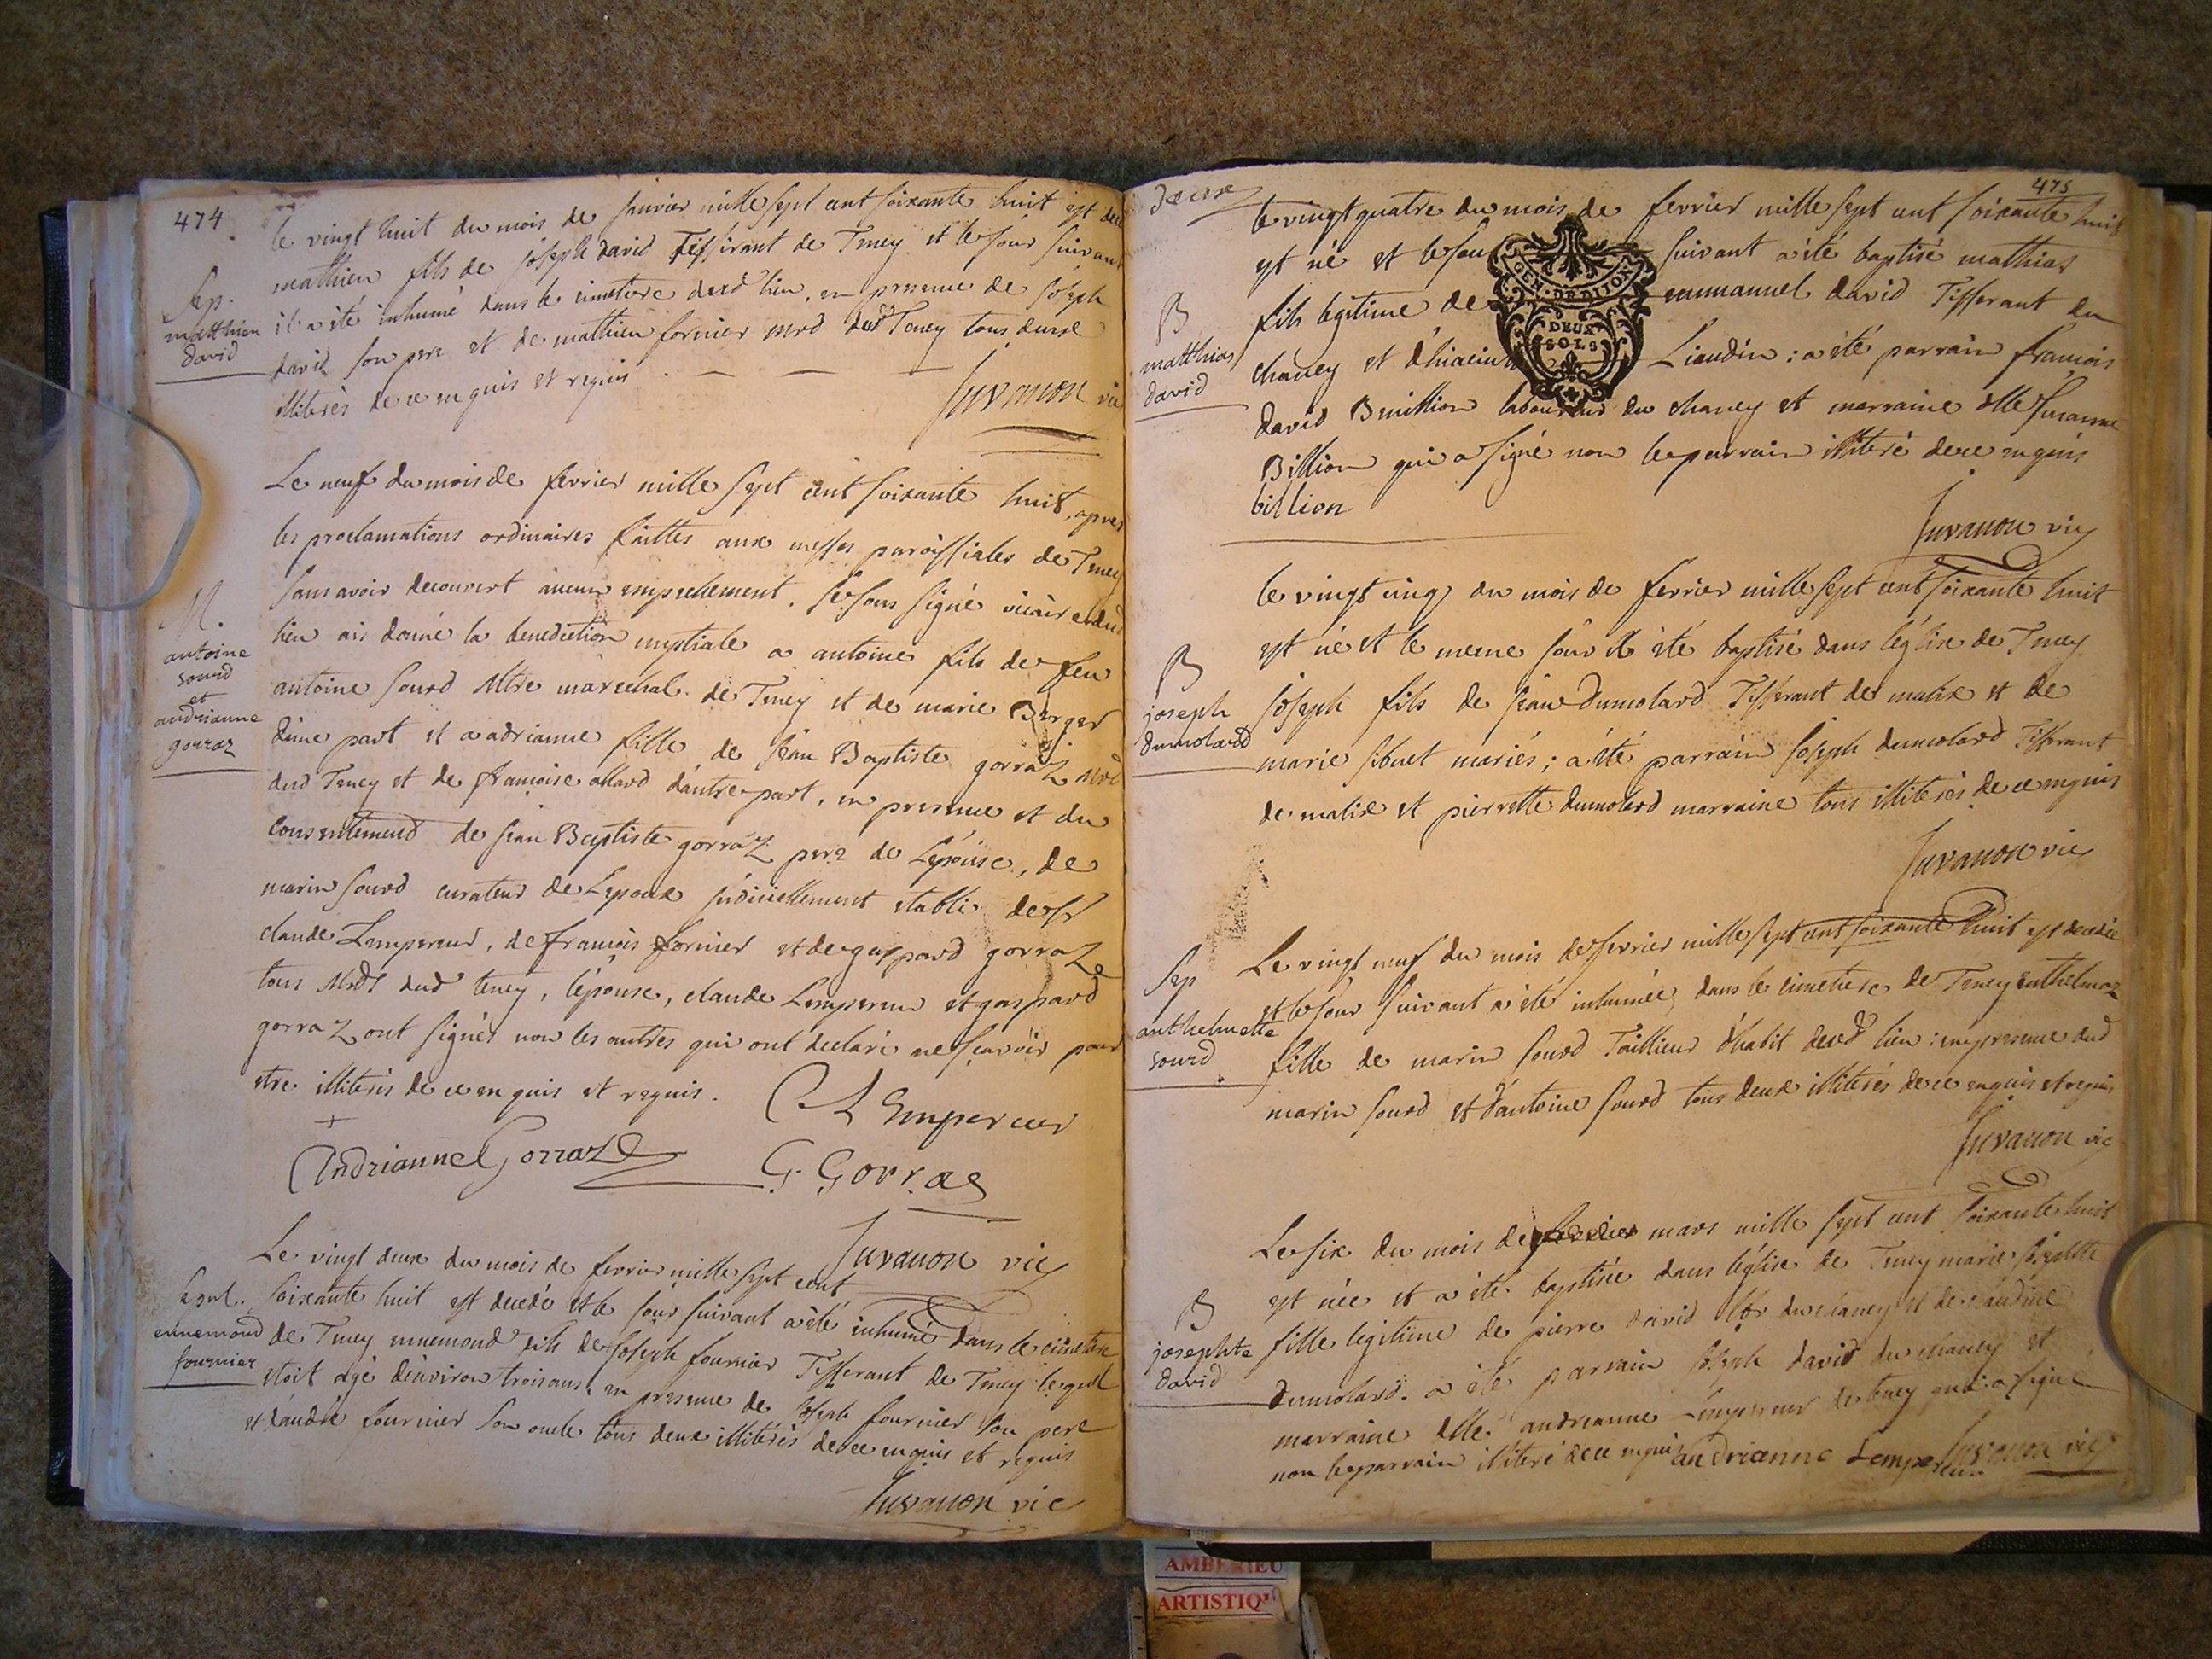 474
le vingt huit du mois de janvier mille sept cent soixante huit est decedé
mathieu fils de joseph david Tisserant de Teney et le jour suivant
il a été inhumé dans le cimetiere dud lieu, en presence de joseph
david son pere et de mathieu fornier mrd dud Teney tous deux
illiterés de ce enquis et requis
Juvanon vic
Sep.
matthieu
david
Le neuf du mois de fevrier mille sept cent soixante huit, apres
les proclamations ordinaires faittes aux messes paroissiales de Teney
sans avoir decouvert aucun empechement. je sous signé vicaire dud
lieu ais donné la benediction nuptiale a antoine fils de feu
antoine sourd Mtre maréchal de Teney et de marie Berger
d'une part et a adrianne fille de jean Baptiste gorraz mrd
dud Teney et de francoise allard d'autre part, en presence et du
consentement de jean Baptiste gorraz pere de L'épouse, de
marin sourd curateur de L'epoux judiciellement etabli de sr
claude Lempereur, de francois fornier et de gaspard gorraz
tous Mrds dud teney, l'épouse, claude Lempereur et gaspard
gorraz ont signés non les autres qui ont declaré ne scavoir pour
etre illiterés de ce enquis et requis.
M.
antoine
sourd
et
andrianne
gorraz
C Lempereur
Andrianne Gorraz
G. Gorras
Juvanon vic
Le vingt deux du mois de fevrier mille sept cent
soixante huit est decedé et le jour suivant a été inhumé dans le cimetiere
de Teney ennemond fils de joseph fournier Tisserant de Teney lequel
etoit agé d'environ trois ans, en presence de joseph fournier son pere
et d'andré fournier son oncle tous deux illiterés de ce enquis et requis
Juvanon vic
Sepul.
ennemond
fournier
475
deux
le vingt quatre du mois de fevrier mille sept cent soixante huit
est né et le jour suivant a été baptisé mathias
fils legitime de emmanuel david Tisserant du
chaney et d'hiacinte Liaudin: a été parrain francois
david Bmillion laboureur du chaney et marraine dlle susanne
Billion qui a signé non le parrain illiteré de ce enquis
billion
Juvanon vic
GEN. DE DIJON
DEUX
SOLS
B
matthias
david
le vingt cinq du mois de fevrier mille sept cent soixante huit
est né et le meme jour a été baptisé dans l'église de Teney
joseph fils de jean dumolard Tisserant de malix et de
marie sibuet mariés; a été parrain joseph dumolard Tisserant
de malix et pierrette dumolard marraine tous illiterés de ce enquis
Juvanon vic
B
joseph
dumolard
Le vingt neuf du mois de fevrier mille sept cent soixante huit est decedée
et le jour suivant a été inhumée dans le cimetiere de Teney anthelmaz
fille de marin sourd Taillieur d'habit dud lieu: en presence dud
marin sourd et d'antoine sourd tous deux illiterés de ce enquis et requis
Juvanon vic
Sep
anthelmette
sourd
Le six du mois de fevrier mars mille sept cent soixante huit
est née et a été baptisée dans l'église de Teney marie josephte
fille legitime de pierre david lbr du chaney et de claudine
dumolard. a été parrain joseph david du chaney et
marraine dlle andrianne Lempereur de teney qui a signé
non le parrain illiteré de ce enquis andrianne Lempereur Juvanon vic
B
josephte
david
AMBERIEU
ARTISTIQ